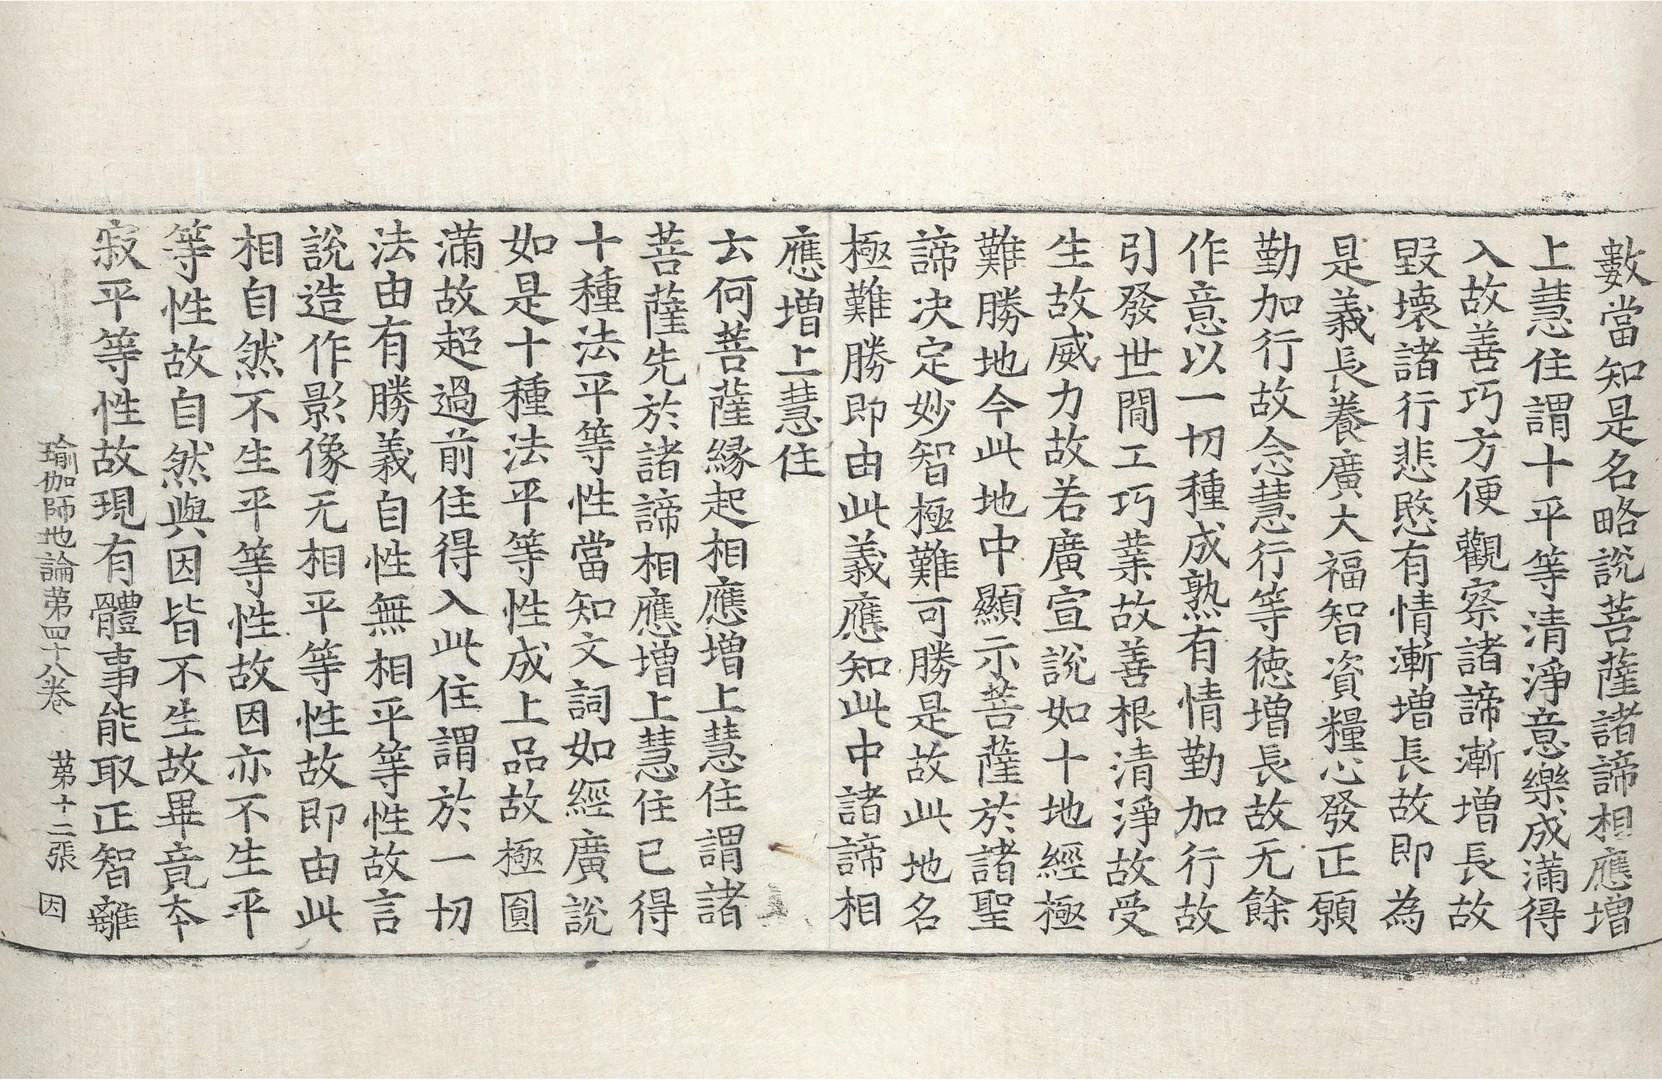 數當知是名略說菩薩諸諦相應增
上慧住謂十平等清淨意樂成滿得
入故善巧方便觀察諸諦漸增長故
毀壞諸行悲愍有情漸增長故即為
是義長養廣大福智資糧心發正願
勤加行故念慧行等德增長故无餘
作意以一切種成熟有情勤加行故
引發世間工巧業故善根清淨故受
生故威力故若廣宣說如十地經極
難勝地今此地中顯示菩薩於諸聖
諦決定妙智極難可勝是故此地名
極難勝即由此義應知此中諸諦相
應增上慧住
云何菩薩緣起相應增上慧住謂諸
菩薩先於諸諦相應增上慧住已得
十種法平等性當知文詞如經廣說
如是十種法平等性成上品故極圓
滿故超過前住得入此住謂於一切
法由有勝義自性無相平等性故言
說造作影像无相平等性故即由此
相自然不生平等性故因亦不生平
等性故自然與因皆不生故畢竟本
寂平等性故現有體事能取正智離
瑜伽師地論第四十八卷 第十二張 因